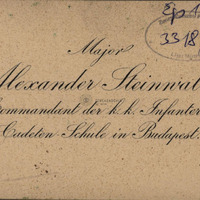 Ep. 4
3318
Major
Alexander Steinwa
Commandant der k. k. Infanter
Cadeten-Schule in Budapest.